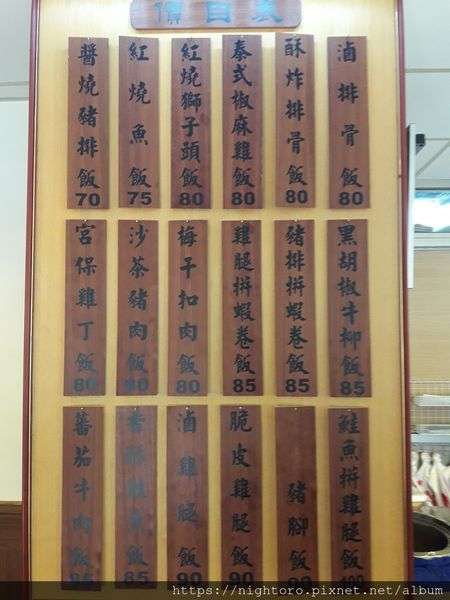 價目表
醬燒豬排飯 70
紅燒魚飯 75
紅燒獅子頭飯 80
泰式椒麻雞飯 80
酥炸排骨飯 80
滷排骨飯 80
宮保雞丁飯 80
沙茶豬肉飯 80
梅干扣肉飯 80
雞腿拼蝦卷飯 85
豬排拼蝦卷飯 85
黑胡椒牛柳飯 85
蕃茄牛肉飯 85
飯 85
滷雞腿飯 90
脆皮雞腿飯 90
豬腳飯 90
鮭魚拼雞腿飯 100
https://nightoro.pixnet.net/album